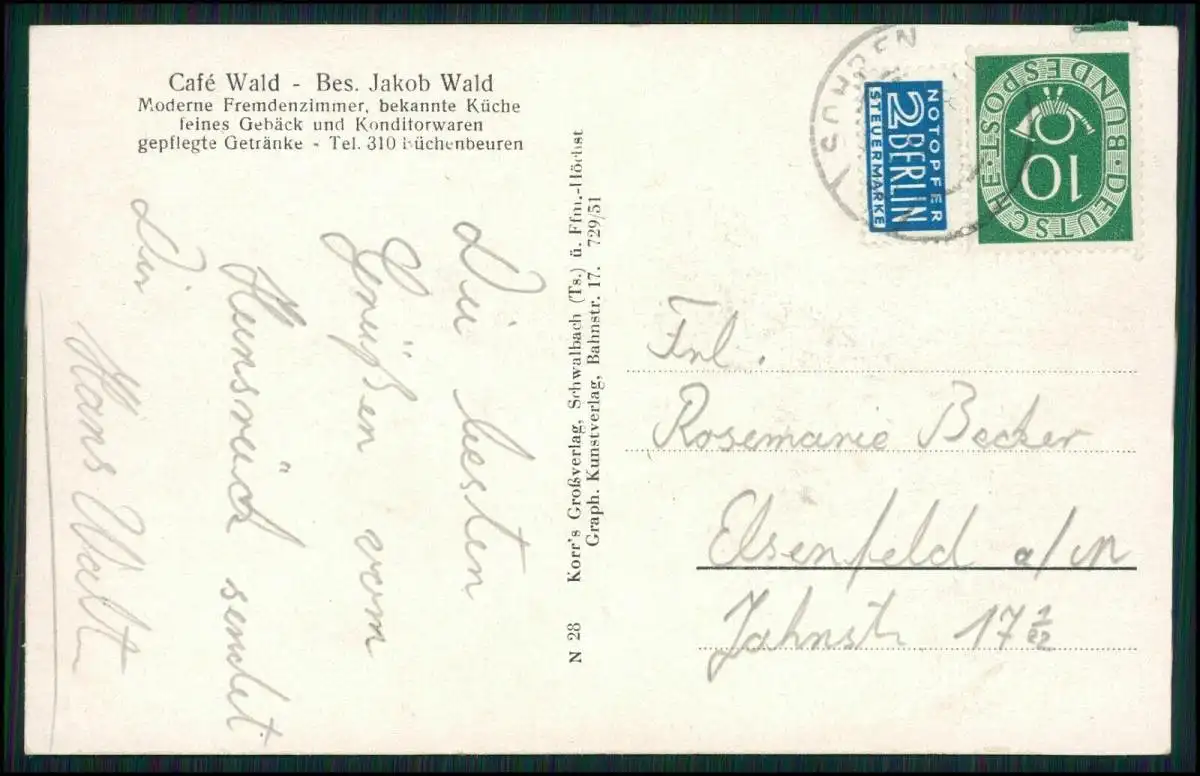 Café Wald - Bes. Jakob Wald
Moderne Fremdenzimmer, bekannte Küche
feines Gebäck und Konditorwaren
gepflegte Getränke - Tel. 310 Büchenbeuren
Die besten
Grüßen vom
Hunsrück sendet
Dir
Hans Walt
N 28 Korr's Großverlag, Schwalbach (Ts.) ü. Ffm.-Höchst
Graph. Kunstverlag, Bahnstr. 17. 729/51
SOHREN
NOTOPFER
2 BERLIN
STEUERMARKE
DEUTSCHE BUNDESPOST
10
Frl.
Rosemarie Becker
Elsenfeld a/M
Jahnstr. 17